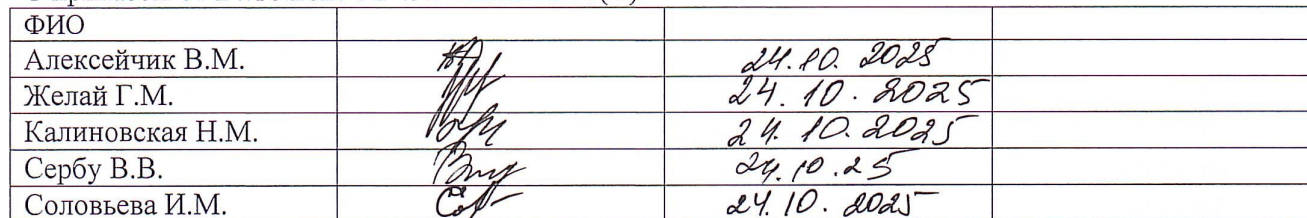 ФИО
Алексейчик В.М. 24.10.2025
Желай Г.М. 24.10.2025
Калиновская Н.М. 24.10.2025
Сербу В.В. 24.10.25
Соловьева И.М. 24.10.2025